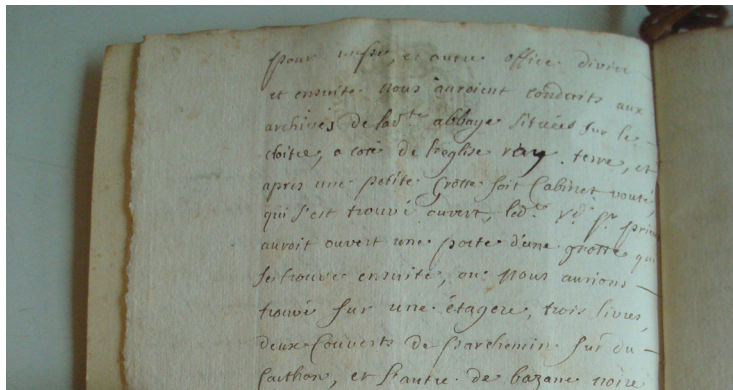 pour messe, et autre office divin
et ensuite nous auroient conduits aux
archives de lad.te abbaye situées sur le
cloitre, a coté de l'eglise ray terre, et
apres une petite grotte soit Cabinet vouté,
qui s'est trouvé ouvert, led.t R.d S.r prieur
auroit ouvert une porte d'une grotte qui
se trouve ensuite, ou nous aurions
trouvé sur une étagere, trois livres,
deux couverts de parchemin sur du
carthon, et l'autre de bazane noire